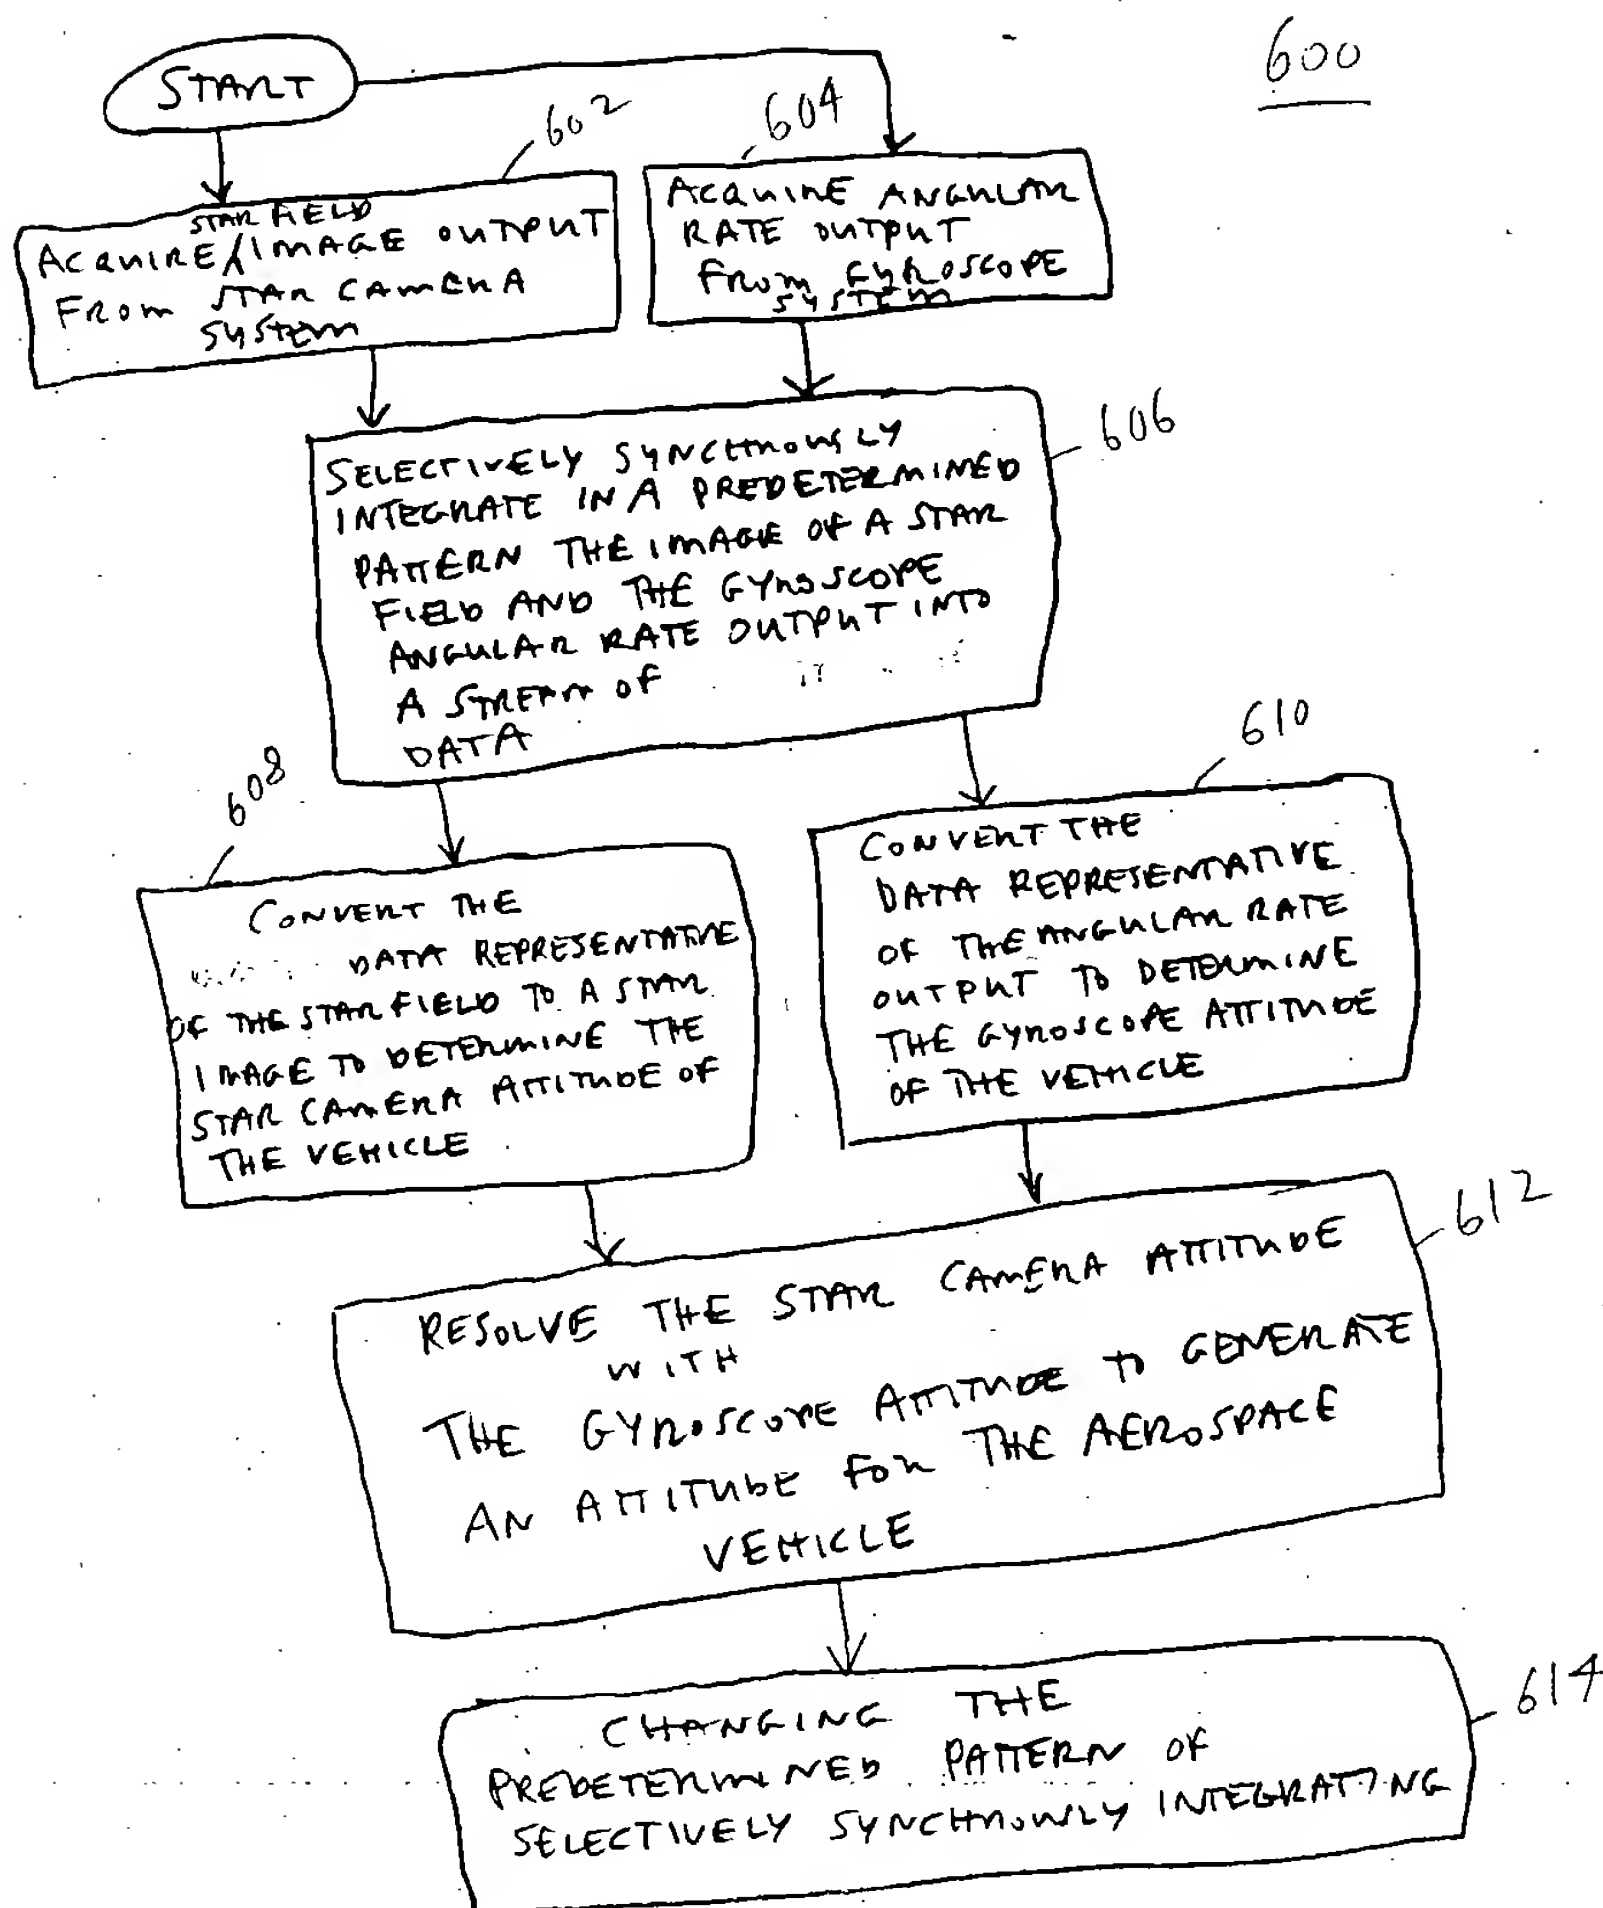 600
START
602
604
STAR FIELD
ACQUIRE/IMAGE OUTPUT
FROM STAR CAMERA
SYSTEM
ACQUIRE ANGULAR
RATE OUTPUT
FROM GYROSCOPE
SYSTEM
606
SELECTIVELY SYNCHRONOUSLY
INTEGRATE IN A PREDETERMINED
PATTERN THE IMAGE OF A STAR
FIELD AND THE GYROSCOPE
ANGULAR RATE OUTPUT INTO
A STREAM OF
DATA
608
CONVERT THE
DATA REPRESENTATIVE
OF THE STAR FIELD TO A STAR
IMAGE TO DETERMINE THE
STAR CAMERA ATTITUDE OF
THE VEHICLE
610
CONVERT THE
DATA REPRESENTATIVE
OF THE ANGULAR RATE
OUTPUT TO DETERMINE
THE GYROSCOPE ATTITUDE
OF THE VEHICLE
612
RESOLVE THE STAR CAMERA ATTITUDE
WITH
THE GYROSCOPE ATTITUDE TO GENERATE
AN ATTITUDE FOR THE AEROSPACE
VEHICLE
614
CHANGING THE
PREDETERMINED PATTERN OF
SELECTIVELY SYNCHRONOUSLY INTEGRATING